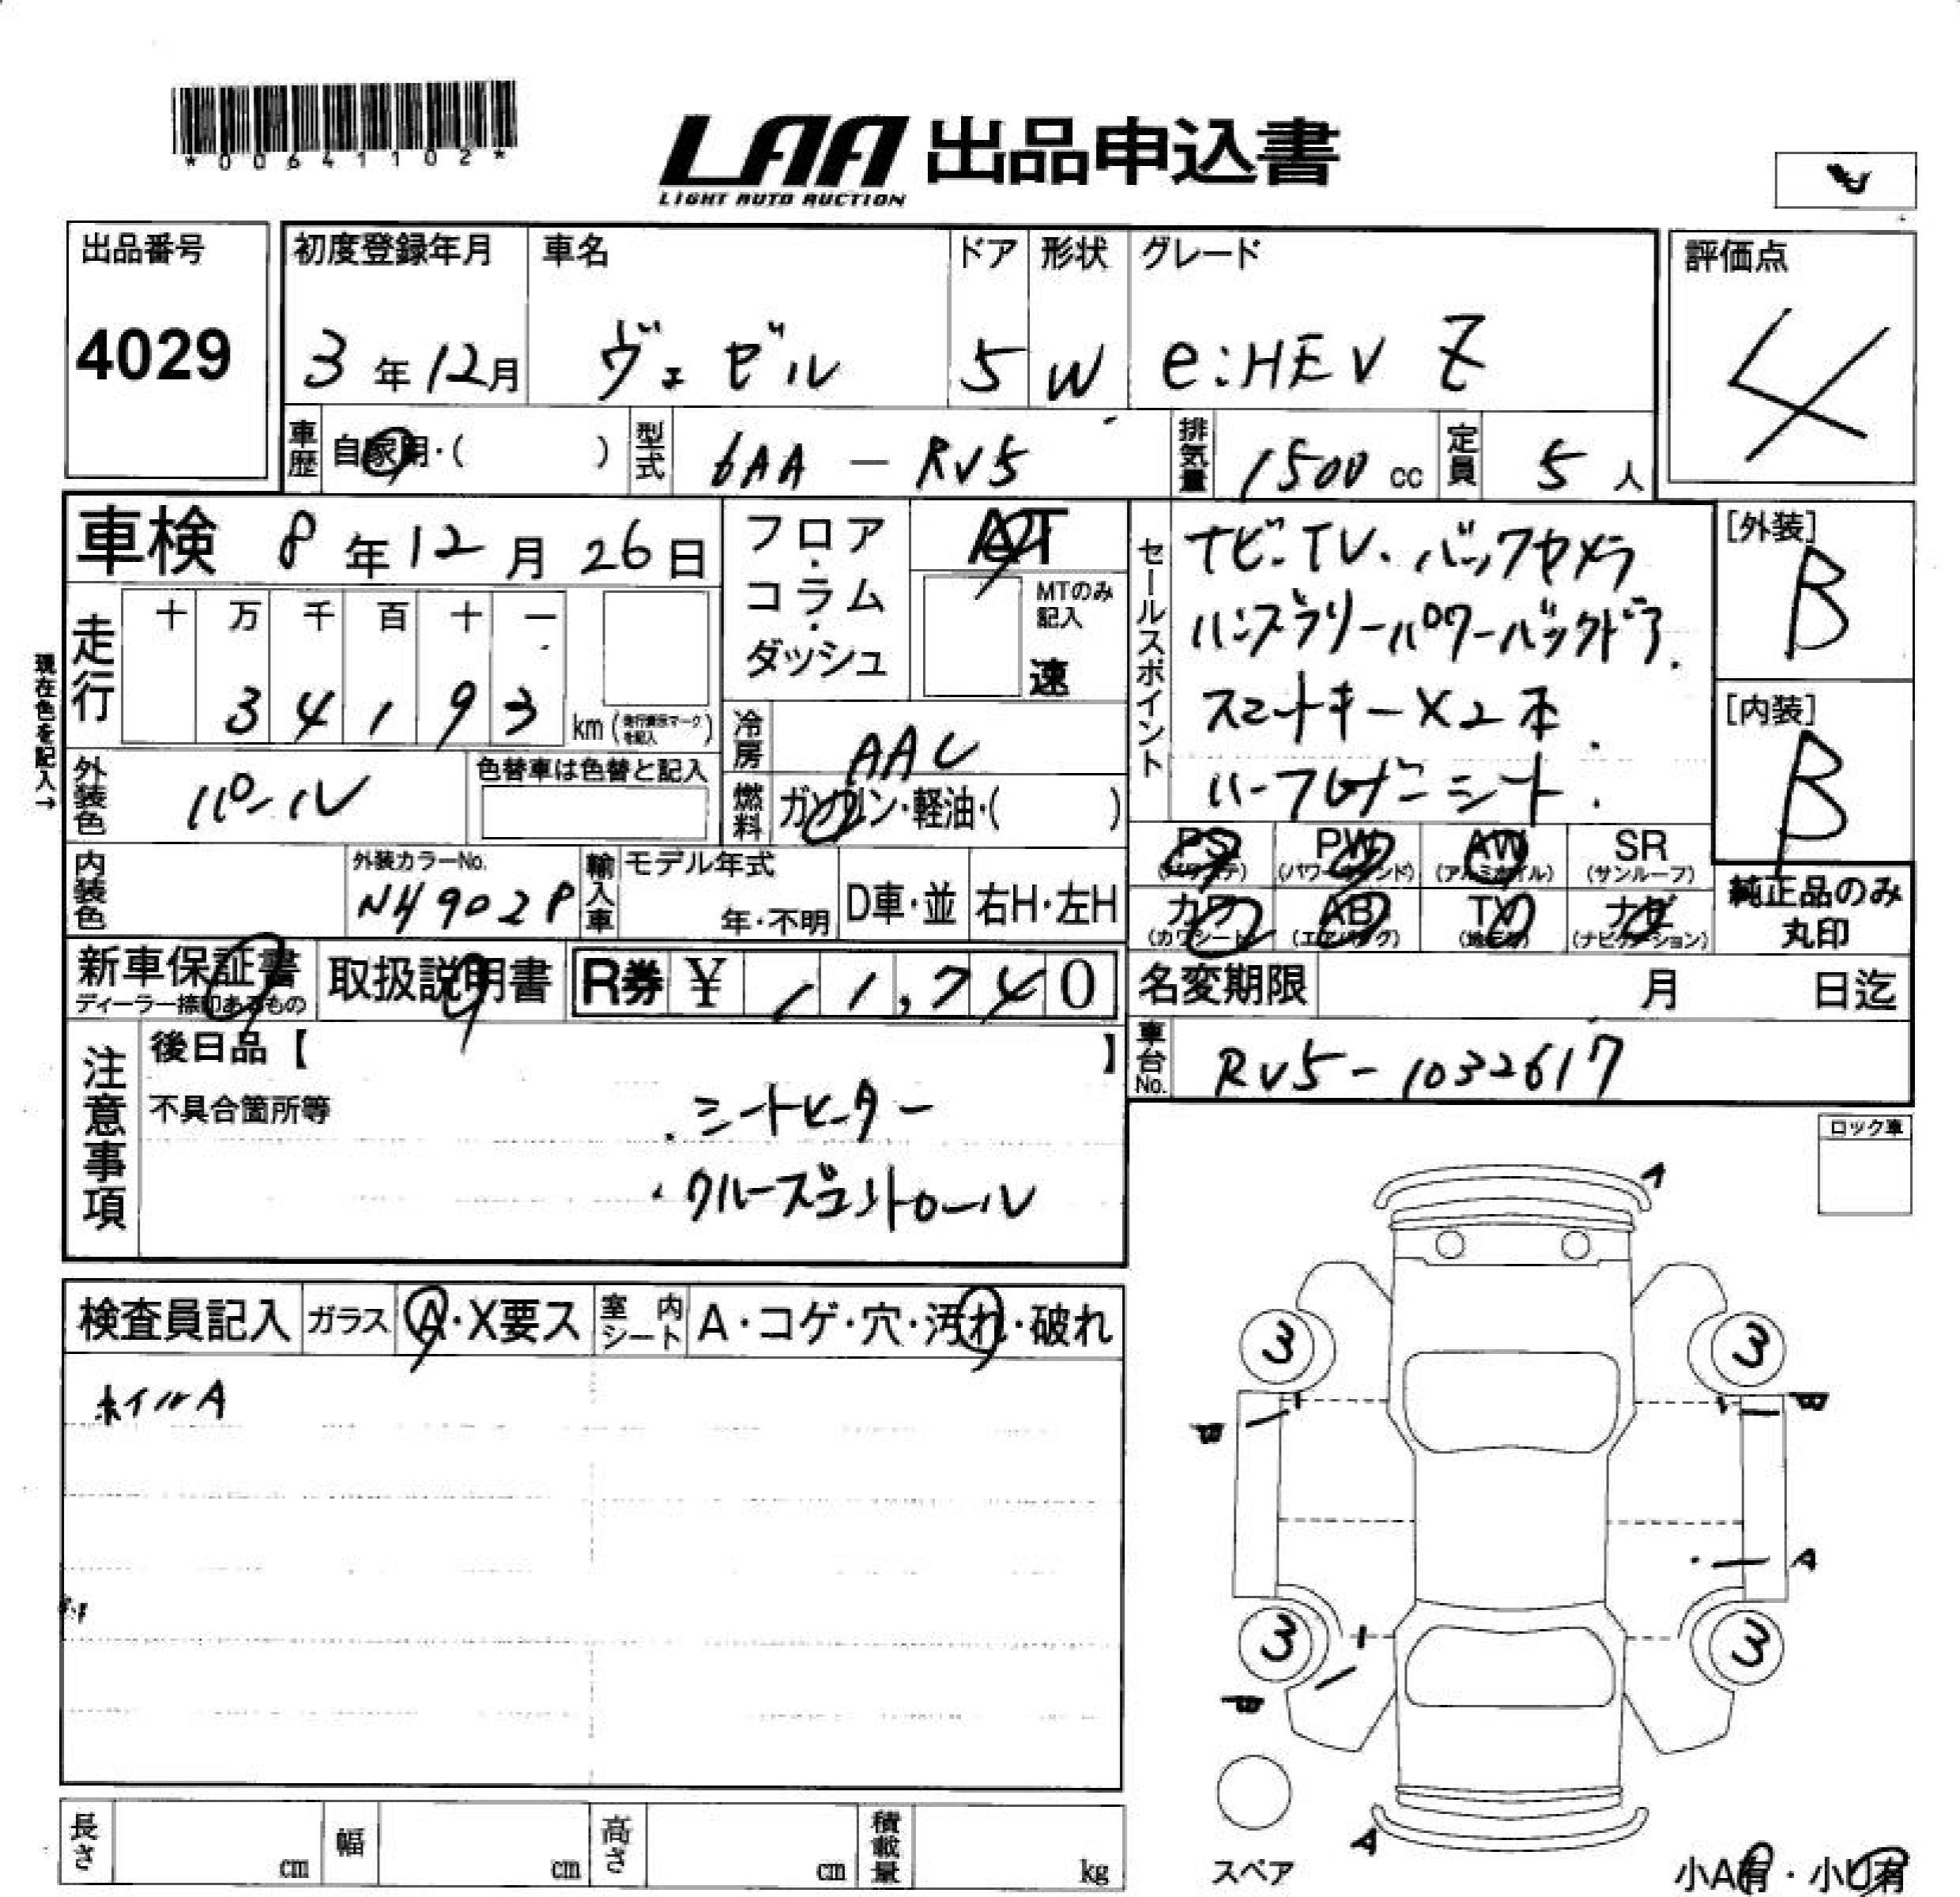 *00641102*
LAA 出品申込書
LIGHT AUTO AUCTION
出品番号
4029
初度登録年月
3年12月
車名
ヴェゼル
ドア
5
形状
W
グレード
e:HEV Z
評価点
4
車歴
自家用・( )
型式
6AA - RV5
排気量
1500 cc
定員
5人
車検 8年12月26日
フロア・コラム・ダッシュ
AT
MTのみ記入
速
セールスポイント
ナビ・TV・バックカメラ
ハンズフリーパワーバックドア.
スマートキー×2本.
ハーフレザーシート.
[外装]
B
[内装]
B
現在色を記入→
走行
十 万 千 百 十 一
3 4 1 9 3
km (走行表示マークを記入)
冷房
AAC
燃料
ガソリン・軽油・( )
外装色
パール
色替車は色替と記入
内装色
外装カラーNo.
NH902P
輸入車
モデル年式
年・不明
D車・並
右H・左H
PS
(パワステ)
PW
(パワーウインド)
AW
(アルミホイル)
SR
(サンルーフ)
カワ
(カワシート)
AB
(エアバッグ)
TV
ナビ
(ナビゲーション)
純正品のみ丸印
新車保証書
ディーラー捺印あるもの
取扱説明書
R券 ¥ 11,740
名変期限
月 日迄
車台No.
RV5-1032617
注意事項
後日品【 】
不具合箇所等
・シートヒーター
・クルーズコントロール
ロック車
検査員記入
ガラス
A・X要ス
室内シート
A・コゲ・穴・汚れ・破れ
ホイルA
A
3
3
A
3
3
A
スペア
長さ
cm
幅
cm
高さ
cm
積載量
kg
小A有・小U有